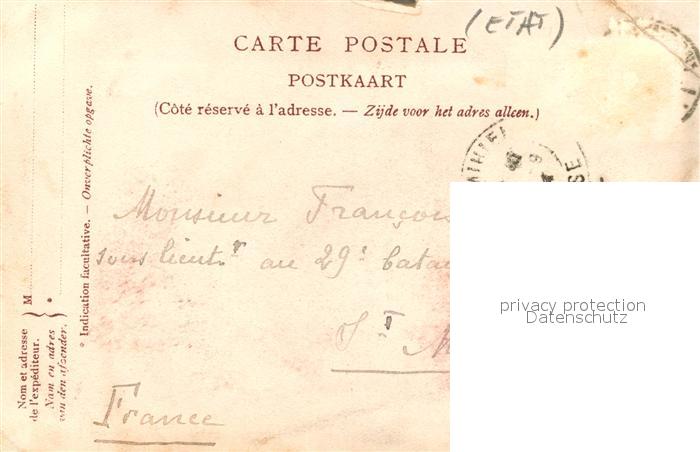 (ETAT)
CARTE POSTALE
POSTKAART
(Côté réservé à l'adresse. — Zijde voor het adres alleen.)
Monsieur François
sous lieutr au 29e batai
St M
France
privacy protection
Datenschutz
* Indication facultative. — Onverplichte opgave.
M
*
Nom et adresse
de l'expéditeur.
Nam en adres
van den afzender.